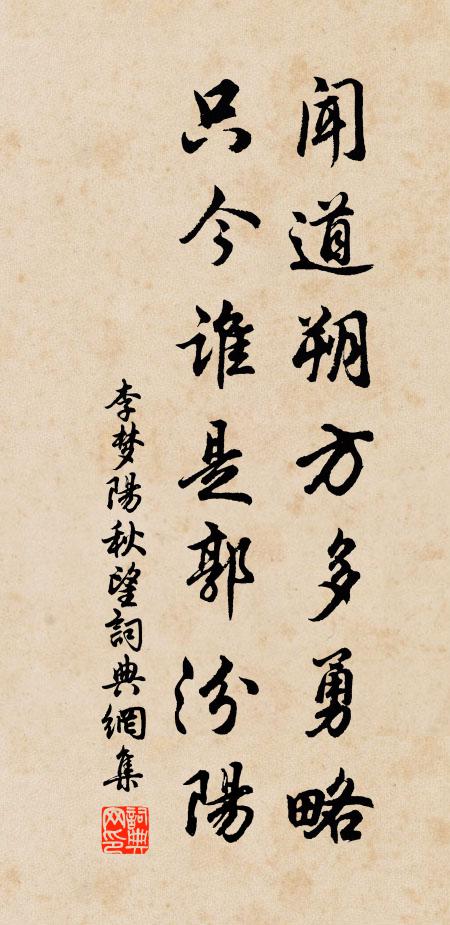 闻道朔方多勇略
只今谁是郭汾陽
李梦陽秋望詞典網集
詞典网印